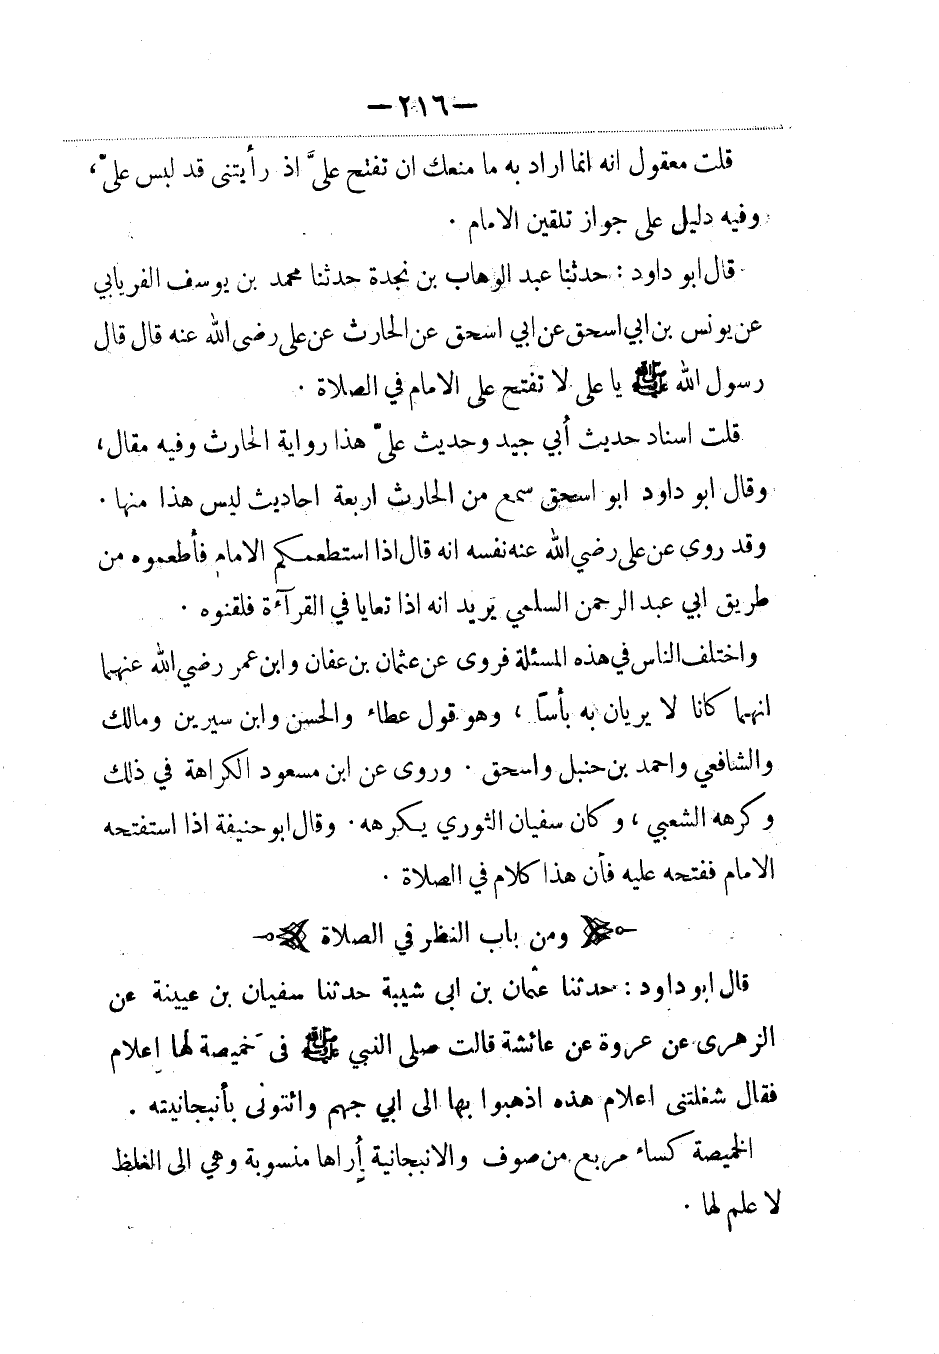 —٢١٦—
قلت معقول انه انما اراد به ما منعك ان تفتح عليَّ اذ رأيتنى قد لبس عليّ،
وفيه دليل على جواز تلقين الامام .
قال ابو داود : حدثنا عبد الوهاب بن نجدة حدثنا محمد بن يوسف الفريابي
عن يونس بن ابي اسحق عن ابي اسحق عن الحارث عن على رضى الله عنه قال قال
رسول الله ﷺ يا على لا تفتح على الامام في الصلاة .
قلت اسناد حديث أبي جيد وحديث عليّ هذا رواية الحارث وفيه مقال،
وقال ابو داود ابو اسحق سمع من الحارث اربعة احاديث ليس هذا منها .
وقد روى عن على رضي الله عنه نفسه انه قال اذا استطعمكم الامام فأطعموه من
طريق ابي عبد الرحمن السلمي يريد انه اذا تعايا في القرآءة فلقنوه .
واختلف الناس في هذه المسئلة فروى عن عثمان بن عفان وابن عمر رضي الله عنهما
انهما كانا لا يريان به بأسًا ، وهو قول عطاء والحسن وابن سيرين ومالك
والشافعي واحمد بن حنبل واسحق . وروى عن ابن مسعود الكراهة في ذلك
وكرهه الشعبي ، وكان سفيان الثوري يكرهه. وقال ابو حنيفة اذا استفتحه
الامام ففتحه عليه فأن هذا كلام في الصلاة .
ومن باب النظر في الصلاة
قال ابو داود : حدثنا عثمان بن ابى شيبة حدثنا سفيان بن عيينة عن
الزهرى عن عروة عن عائشة قالت صلى النبي ﷺ فى خميصة لها إعلام
فقال شغلتنى اعلام هذه اذهبوا بها الى ابي جهم وائتونى بأنبجانيته .
الخميصة كساء مربع من صوف والانبجانية أراها منسوبة وهي الى الغلظ
لا علم لها .